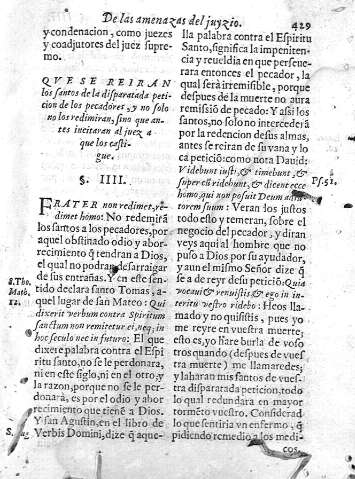 De las amenazas del juyzio.
429
y condenacion, como juezes
y coadjutores del juez supre-
mo.
QVE SE REIRAN
los santos de la disparatada peti
cion de los pecadores, y no solo
no los redimiran, sino que an-
tes incitaran al juez a
que los casti-
gue.
§. IIII.
FRATER non redimet, re-
dimet homo: No redemirà
los santos a los pecadores, por
aquel obstinado odio, y abor-
recimiento q̃ tendran a Dios,
el qual no podran desarraigar
de sus entrañas. Y en este sen-
tido declara santo Tomas, a-
quel lugar de san Mateo: Qui
dixerit verbum contra Spiritum
sanctum non remitetur ei, neq; in
hoc seculo nec in futuro: El que
dixere palabra contra el Espi
ritu santo, no se le perdonara,
ni en este siglo, ni en el otro: y
la razon, porque no se le per-
donarà, es por el odio y abor
recimiento que tiene a Dios.
Y san Agustin, en el libro de
Verbis Domini, dize q̃ aque-
S. Tho.
Math.
12.
S. Aug
lla palabra contra el Espiritu
Santo, significa la impeniten-
cia y reueldia en que perseue-
rara entonces el pecador, la
qual serà irremisible, porque
despues de la muerte no aura
remissiõ de pecado: Y assi los
santos, no solo no intercederà
por la redencion de sus almas,
antes se reiran de su vana y lo
ca peticiõ: como nota Dauid:
Videbunt iusti, & timebunt, &
super eũ ridebunt, & dicent ecce
homo, qui non posuit Deum adiu
torem suum: Veran los justos
todo esto y temeran, sobre el
negocio del pecador, y diran
veys aqui al hombre que no
puso a Dios por su ayudador,
y aun el mismo Señor dize q̃
se a de reyr de su peticiõ: Quia
vocaui & renuistis & ego in in
teritu vestro ridebo: Heos lla-
mado y no quisistis, pues yo
me reyre en vuestra muerte,
esto es, yo harè burla de voso
tros quando (despues de vues
tra muerte) me llamaredes;
y laharan mis santos de vues-
tra disparatada peticion, todo
lo qual redundara en mayor
tormẽto vuestro. Considerad
lo que sentiria vn enfermo, q̃
pidiendo remedio a los medi-
cos,
Ps. 51.